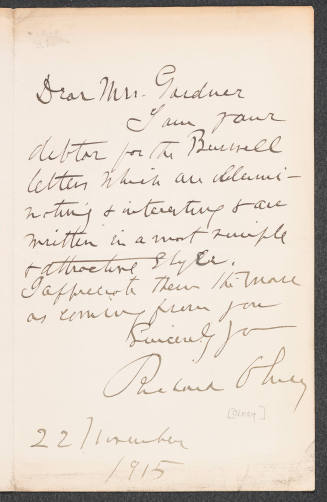 Dear Mrs. Gardner
I am your
debtor for the
letters which are illumi-
nating & interesting & are
written in a most simple
& attractive style.
I appreciate them the more
as coming from you
Sincerely yo
Richard Olney
[Olney]
22 November
1915